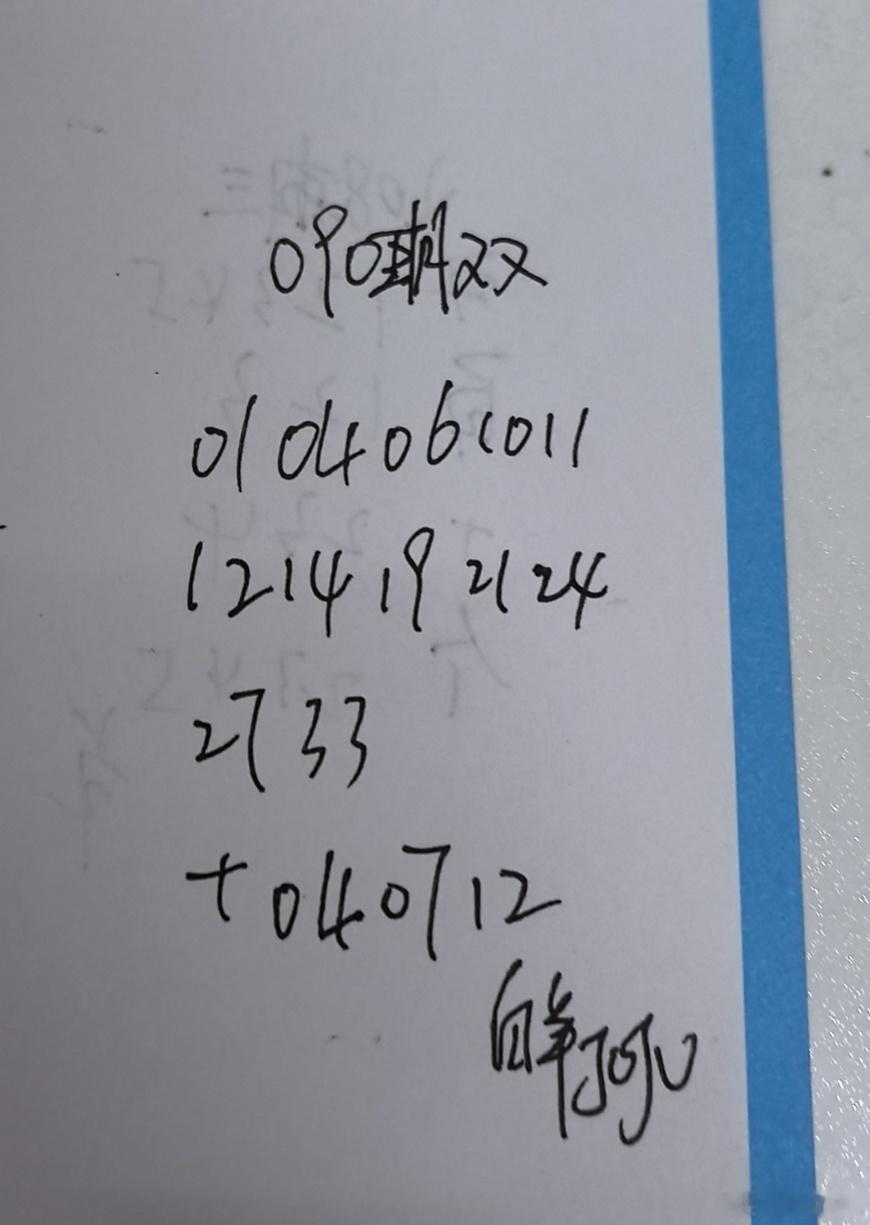 090期双
01 04 06 10 11
12 14 19 21 24
27 33
+ 04 07 12